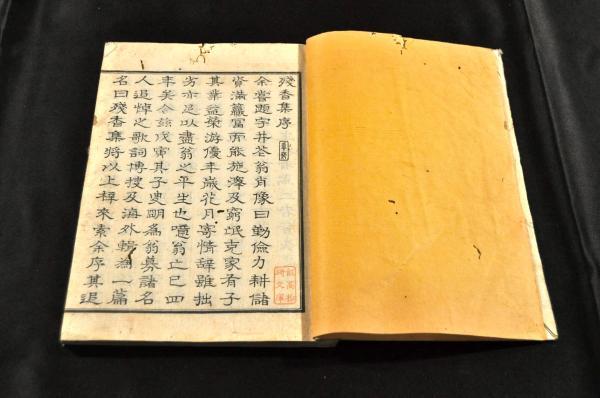 殘香集序
余嘗題宇井荅翁肖像曰勤儉力耕儲
資滿籯富而能施濟及窮氓克家有子
其業益榮游優年歲花月寄情辭雖拙
劣亦足以盡翁之平生也噫翁亡已四
年矣今茲戊寅其子史朗爲翁募諸名
人追悼之歌詞博搜及海外輯爲一篇
名曰殘香集將以上梓來索余序其追